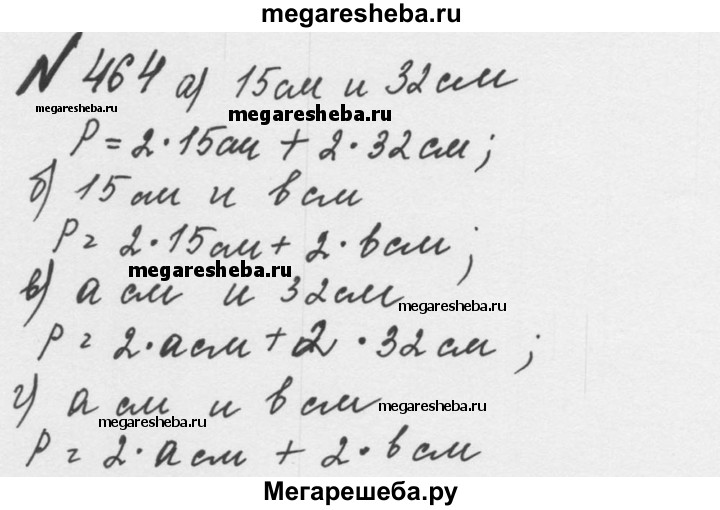 megaresheba.ru
№ 464 а) 15см и 32см
megaresheba.ru
megaresheba.ru
P = 2·15см + 2·32см;
б) 15 см и b см
P = 2·15см + 2·b см;
megaresheba.ru
в) a см и 32см
megaresheba.ru
P = 2·a см + 2·32см;
г) a см и b см
megaresheba.ru
megaresheba.ru
P = 2·a см + 2·b см
Мегарешеба.ру